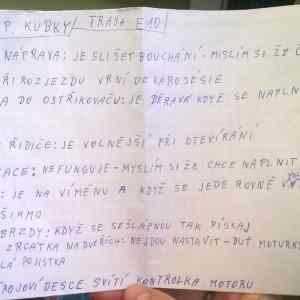 P. KUBKY / TRAGA E10
NÁPRAVA: JE SLIŠET BOUCHÁNÍ - MISLÍM SI ŽE
PŘI ROZJEZDU VRNÍ
A DO OSTŘIKOVAČU: JE DĚRAVÁ KDYŽ SE NAPLN
ŘIDIČE: JE VOLNĚJŠÍ PŘI OTEVÍRÁNÍ
ACE: NEFUNGUJE - MYSLÍM SI ŽE CHCE NAPLNIT
: JE NA VIMĚNU A KDYŽ SE JEDE ROVNĚ
ŠIKMO
BRZDY: KDYŽ SE SEŠLÁPNOU TAK PÍSKAJ
ZRCATKA NA DVEŘÍCH: NEJDOU NASTAVIT - BUŤ MOTURK
LÁ POJISTKA
ROJOVÍ DESCE SVÍTÍ KONTROLKA MOTORU